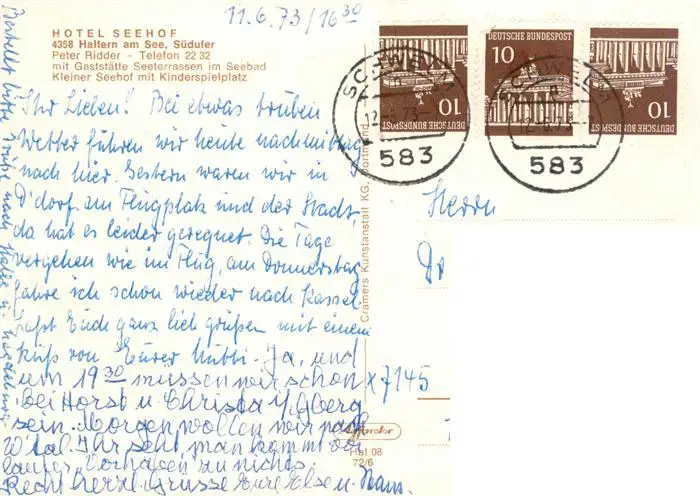 11.6.73/16³⁰
HOTEL SEEHOF
4358 Haltern am See, Südufer
Peter Ridder - Telefon 22 32
mit Gaststätte Seeterrassen im Seebad
Kleiner Seehof mit Kinderspielplatz
Ihr Lieben! Bei etwas trüben
Wetter fuhren wir heute nachmittag
nach hier. Gestern waren wir in
D'dorf am Flugplatz und der Stadt
da hat es leider geregnet. Die Tage
vergehen wie im Flug, am Donnerstag
fahre ich schon wieder nach Kassel.
Laßt Euch ganz lieb grüßen mit einem
Kuß von Eurer Mutti. Ja, und
um 19³⁰ müssen wir schon
bei Horst u. Christa
sein. Morgen wollen wir nach
W'tal. Ihr seht, man kommt vor
lauter Vorhaben zu nichts.
Recht herzl. Grüsse Eure Else u. Hans.
Bestellt bitte Grüße noch
x 7145
Cramers Kunstanstalt KG, Dortmund
Hal 08
72/6
DEUTSCHE BUNDESPOST
10
DEUTSCHE BUNDESPOST
10
DEUTSCHE BUNDESPOST
10
SCHWELM
12.-6.73
583
SCHWELM
12.-6.73
583
Herrn
Dr